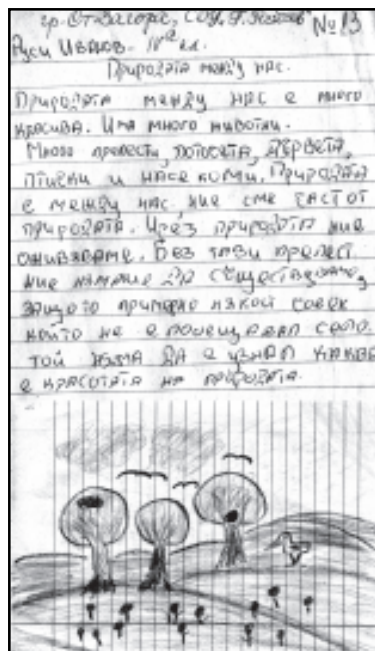 гр. Ст. Загора, СОУ №13
Руси Иванов - IVа кл.
Природата между нас.
Природата между нас е много
красива. Има много животни.
Много прелести, потосета, дървета,
птички и насекоми. Природата
е между нас, ние сме част от
природата. Чрез природата ние
оживяваме. Без тази прелест
ние нямаше да съществуваме,
защото примерно някой човек
който не е посещавал село.
той няма да е узнал каква
е красотата на природата.